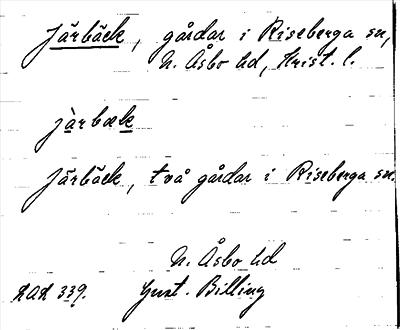 Järbäck, gårdar i Riseberga sn,
N. Åsbo hd, Krist. l.
jàrbæk
Järbäck, två gårdar i Riseberga sn.
N. Åsbo hd
LAL 339. Gust. Billing